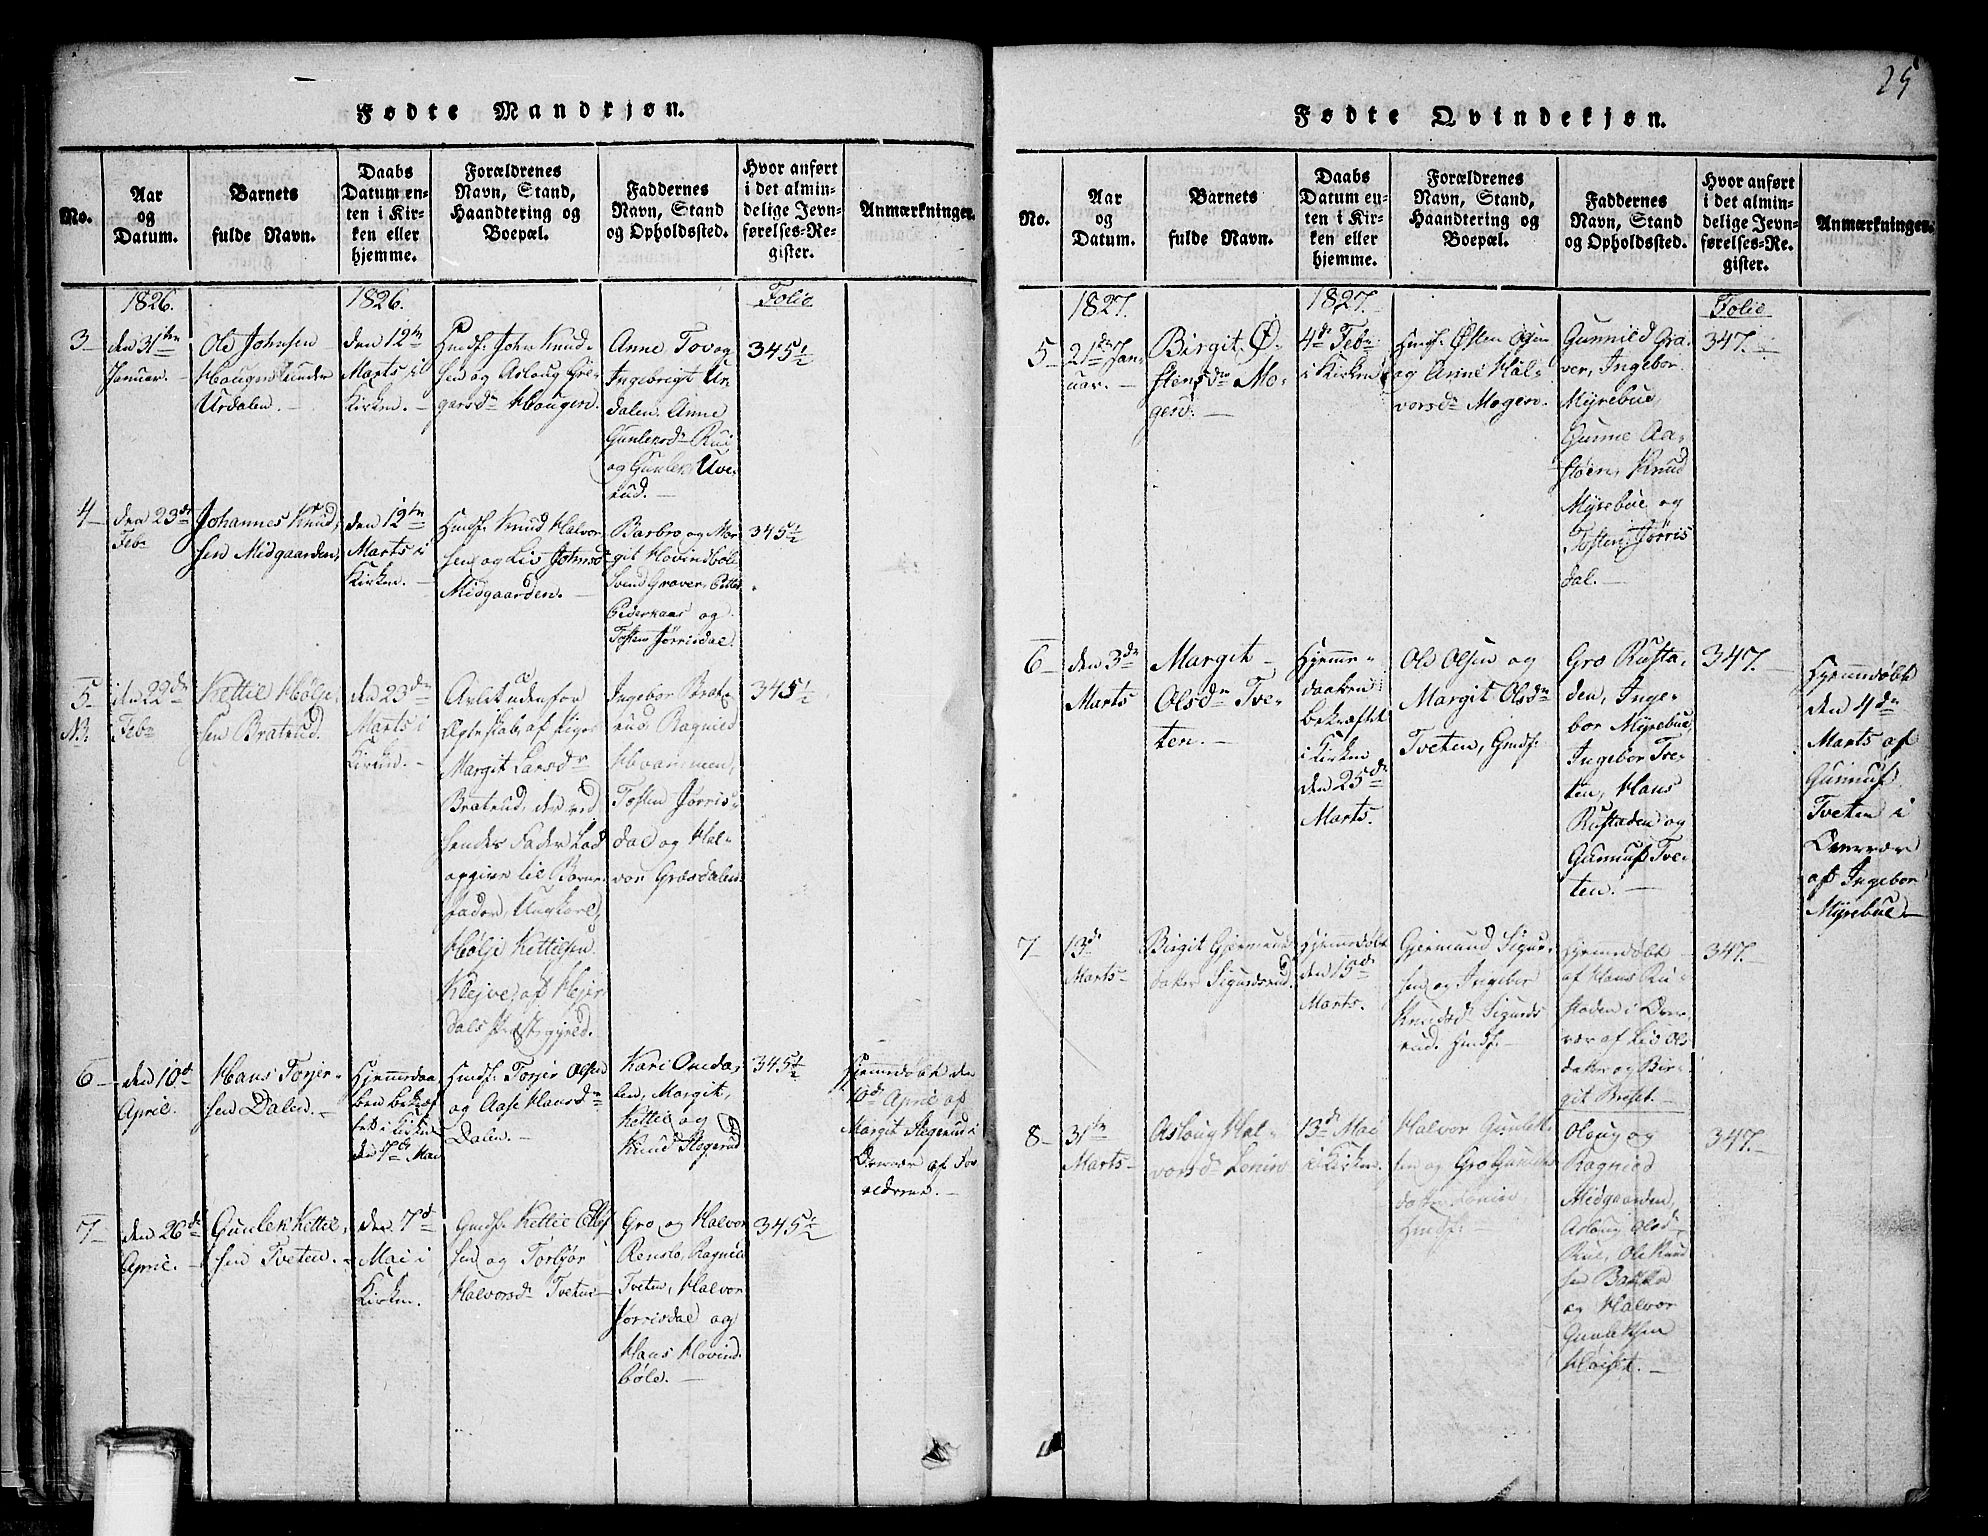 25
Fødte Mandkjøn.
No.
Aar
og
Datum.
Barnets
fulde Navn.
Daabs
Datum en-
ten i Kir-
ken eller
hjemme.
Forældrenes
Navn, Stand,
Haandtering og
Boepæl.
Faddernes
Navn, Stand
og Opholdssted.
Hvor anført
i det almin-
delige Jevn-
førelses-Re-
gister.
Anmærkninger.
1826.
1826.
Folio
3
den 31te
Januar.
Ole Johnsen
Haugen under
Urdalen.
den 12te
Marts i
Kirken.
Huusf. John Knud-
sen og Asloug Gre-
garsdr Haugen.
Anne, Tov og
Ingebrigt Ur-
dalen, Anne
Gunleksdr Rui
og Gunlek Uve-
rud.
345½
4
den 23de
Febr
Johannes Knud-
sen Midgaarden,
den 12te
Marts i
Kirken.
Huusf. Knud Halvor-
sen og Liv Johnsdr
Midgaarden.
Barbro og Mar-
git Hovindbøle
Svend Graver,
og
Tosten Jørrisdal.
345½
5
NB.
den 22de
Febr
Kettil Hølje-
sen Bratrud.
den 23de
Marts i
Kirken.
Avlet udenfor
Ægteskab, af Pigen
Margit Larsdr
Bratrud, der ved
hendes Fader Lod
opgive til Barne-
fader, Ungkarl,
Hølje Kettilsen
Klejve, af Hjer-
dals Præstegjeld.
Ingebor Brat-
rud Ragnild
Hvammen,
Tosten Jørris-
dal og Hal-
vor Græsdalen.
345½
6
den 10de
April.
Hans Torjer-
sen Dalen.
Hjemmedaa-
ben bekræf-
tet i Kirken
den 7de Mai
Huusf. Torjer Olsen
og Aase Hansdr
Dalen.
Kari Omda-
len, Margit,
Kettil og
Knud Stegerud
345½
Hjemmedøbt den
10de April af
Margit Stegerud i
Overvær af For-
ældrene.
7
den 26de
April.
Gunlek Kettil-
sen Tveten.
den 7de
Mai i
Kirken.
Gmdf. Kettil Ellef-
sen og Torbjør
Halvorsdr Tveten
Gro og Halvor
Renslo, Ragnild
Tveten, Halvor
Jørrisdal og
Hans Hovind-
bøle.
345½
Fødte Qvindekjøn.
No.
Aar
og
Datum.
Barnets
fulde Navn.
Daabs
Datum en-
ten i Kir-
ken eller
hjemme.
Forældrenes
Navn, Stand,
Haandtering og
Boepæl.
Faddernes
Navn, Stand
og Opholdssted.
Hvor anført
i det almin-
delige Jevn-
førelses-Re-
gister.
Anmærkninger.
1827.
1827.
Folio
5
21de Jan-
uar.
Birgit Ø-
stensdr Mo-
gen.
4de Febr
i Kirken
Huusf. Østen
og Anne Hal-
vorsdr Mogen.
Gunnild Gra-
ver, Ingebor
Myrebue,
Gunne Aa-
støen, Knud
Myrebue og
Tosten Jørris
dal.
347.
6
den 3de
Marts
Margit
Olsdr Tve-
ten.
Hjemme-
daaben
bekræftet
i Kirken
den 25de
Marts.
Ole Olsen og
Margit Olsdr
Tveten, Gmdf.
Gro Rusta-
den, Inge-
bor Myrebue,
Ingebor Tve-
ten, Hans
Rustaden og
Gunnuf Tve-
ten.
347.
Hjemmedøbt
den 4de
Marts af
Gunnuf
Tveten i
Overvær
af Ingebor
Myrebue
7
13de
Marts
Birgit Gjermunds-
datter Sigurdsrud.
Hjemmedøbt
den 15de
Marts.
Gjermund Sigur-
sen og Ingebor
Knudsd Sigurds
rud. Huusf.
Hjemmedøbt
af Hans Ru-
staden i Over-
vær af Liv Ols
datter og Bir-
git
347.
8
31te
Marts
Aslaug Hal-
vorsdr
13de Mai
i Kirken.
Halvor Gunlek-
sen og Gro
datter
Huusf.
Oloug og
Ragnild
Midgaarden,
Aslaug Olsdr
Rui, Ole Knud
sen Bakka
og Halvor
Gunleksen
347.